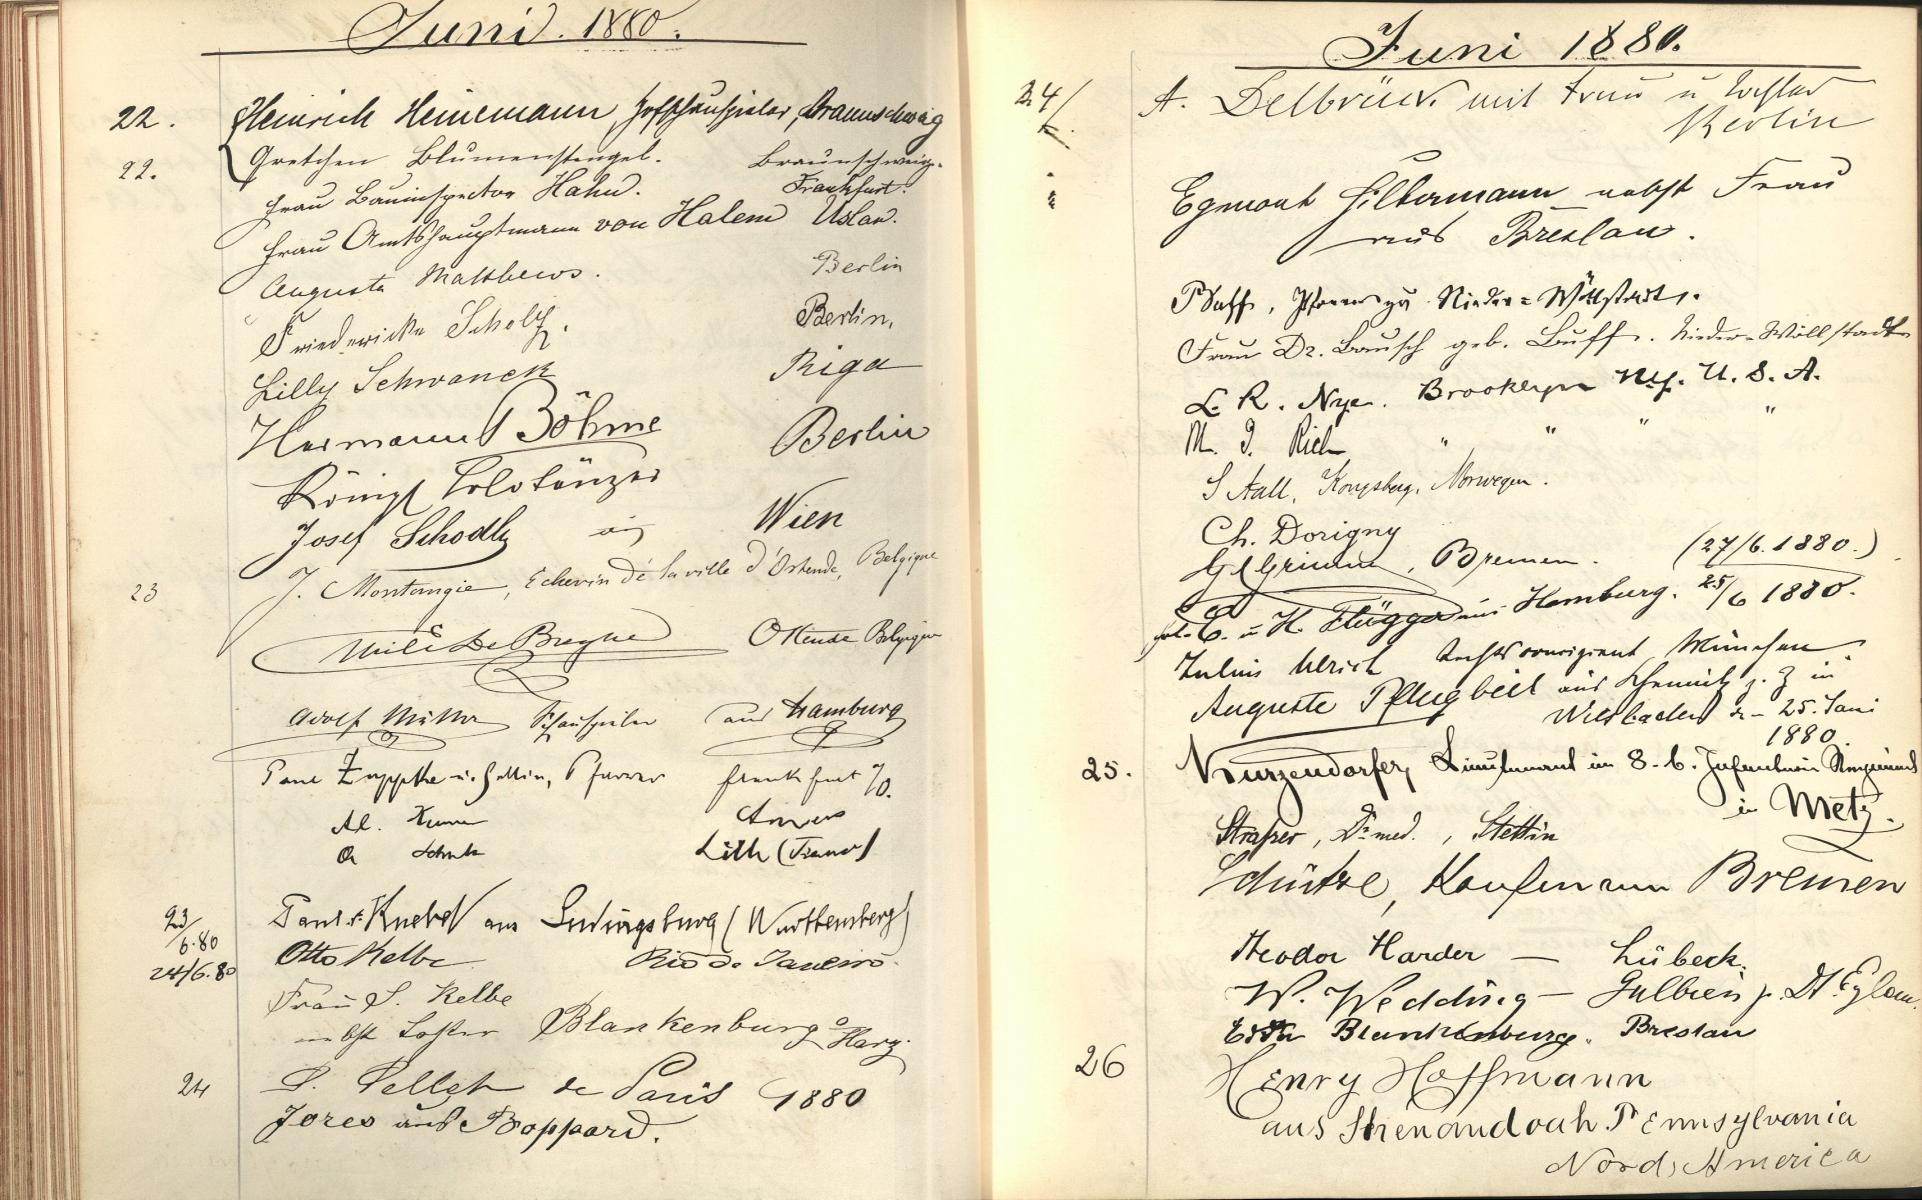 Juni. 1880.
22. Heinrich Heinemann, Hofschauspieler, Braunschweig
22. Gretchen Blumenstengel. Braunschweig.
Frau Bauinspector Hahn. Frankfurt.
Frau Amtshauptmann von Halem Uslar.
Augusta Matthews. Berlin
Friedericke Scholz. Berlin.
Lilly Schwanck Riga
Hermann Böhme Berlin
Königl Solotänzer
Josef Schodl aus Wien
23 J. Montangie, Echevin de la ville d'Ostende, Belgique
De Bregne Ostende Belgique
Adolf Müller Schauspieler aus Hamburg
Frankfurt a/O.
Al.
Anvers
Lille (France)
23/6.80 Knebel aus Ludwigsburg (Württemberg)
24/6.80 Otto Kelbe Rio de Janeiro.
Frau S. Kelbe
nebst Tochter Blankenburg a Harz.
24 de Paris 1880
Jores aus Boppard.
Juni 1880.
24/ A. Delbrück mit Frau u Tochter
Berlin
Egmont Silbermann nebst Frau
aus Breslau.
Nieder-Wöllstadt.
Frau Dr. Bausch geb. Buff. Nieder-Wöllstadt
L. R. Nye. Brooklyn N.Y. U. S. A.
M. Rich " " " "
S Aall, Kongsberg, Norwegen.
Ch. Dorigny
Grimm, Bremen. (27/6.1880.)
u H. Flügger aus Hamburg. 25/6 1880.
Julius Ulrich Rechtsconcipient München
Auguste Pflugbeil aus Chemnitz z. Z in
Wiesbaden d. 25. Juni
1880.
25. Kurzendorfer, Lieutenant im 8. b. Infanterie Regiment
in Metz.
Straßer, Dr med., Stettin
Schütze, Kaufmann Bremen
Theodor Harder — Lübeck.
W. Wedding — Gulbien p. Dt Eylau.
Blankenburg. Breslau
26 Henry Hoffmann
aus Shenandoah Pennsylvania
Nord, America